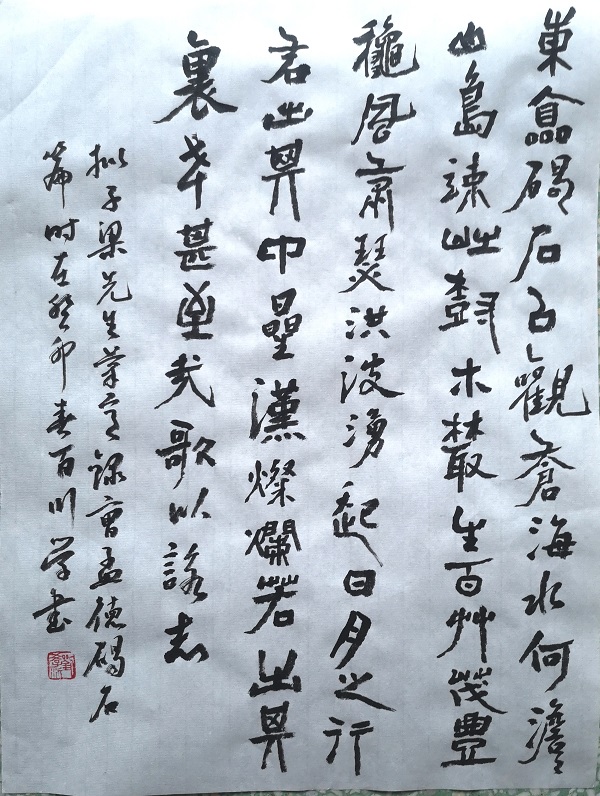 東臨碣石㠯觀蒼海水何澹
山島竦峙樹木叢生百艸茂豐
龝風肅瑟洪波湧起日月之行
若出其中星漢燦爛若出其
裏幸甚至哉歌以詠志
拟子梁先生筆意錄曹孟德碣石
篇時在癸卯春百川学書